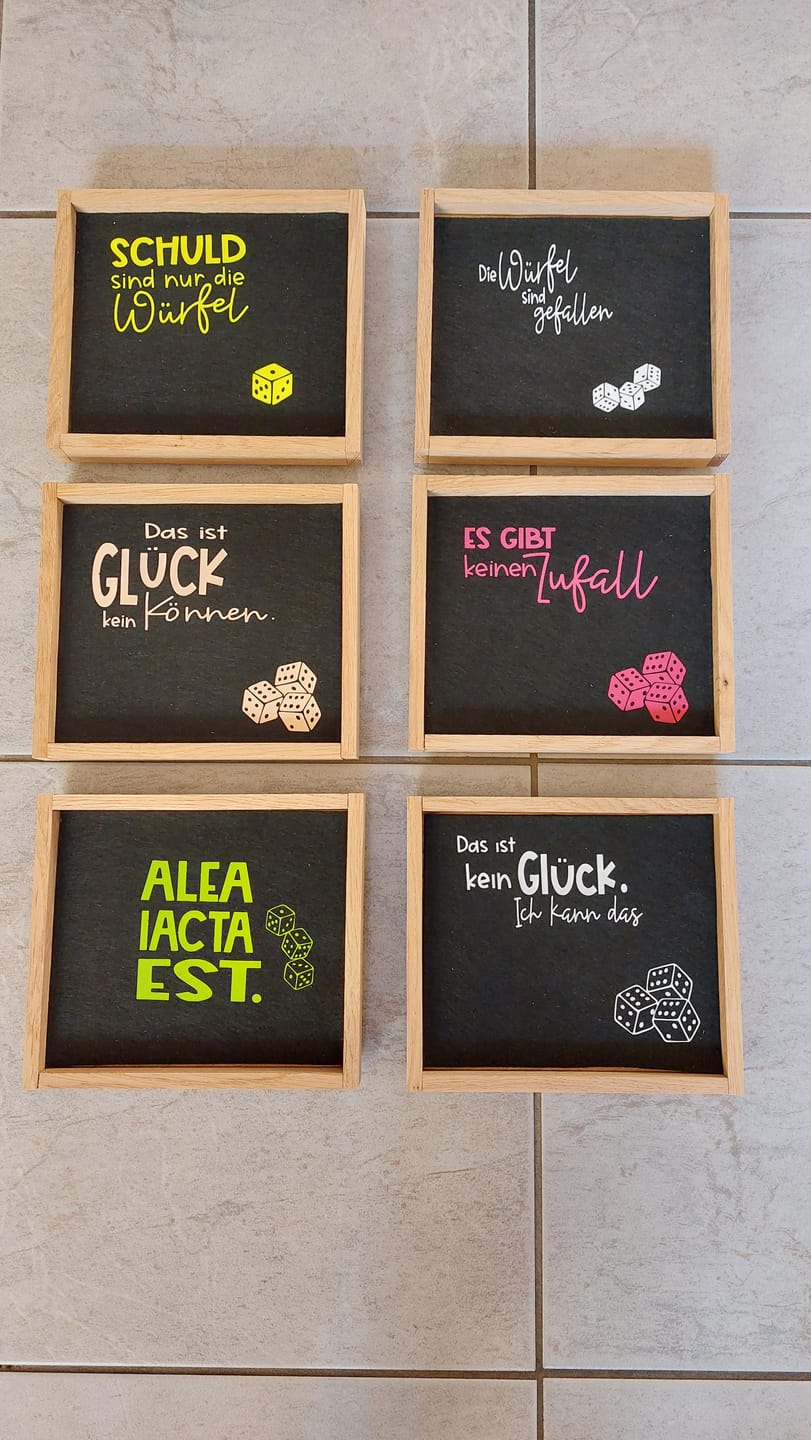 SCHULD
sind nur die
Würfel
Die Würfel
sind
gefallen
Das ist
GLÜCK
kein Können.
ES GIBT
keinen Zufall
ALEA
IACTA
EST.
Das ist
kein Glück.
Ich kann das